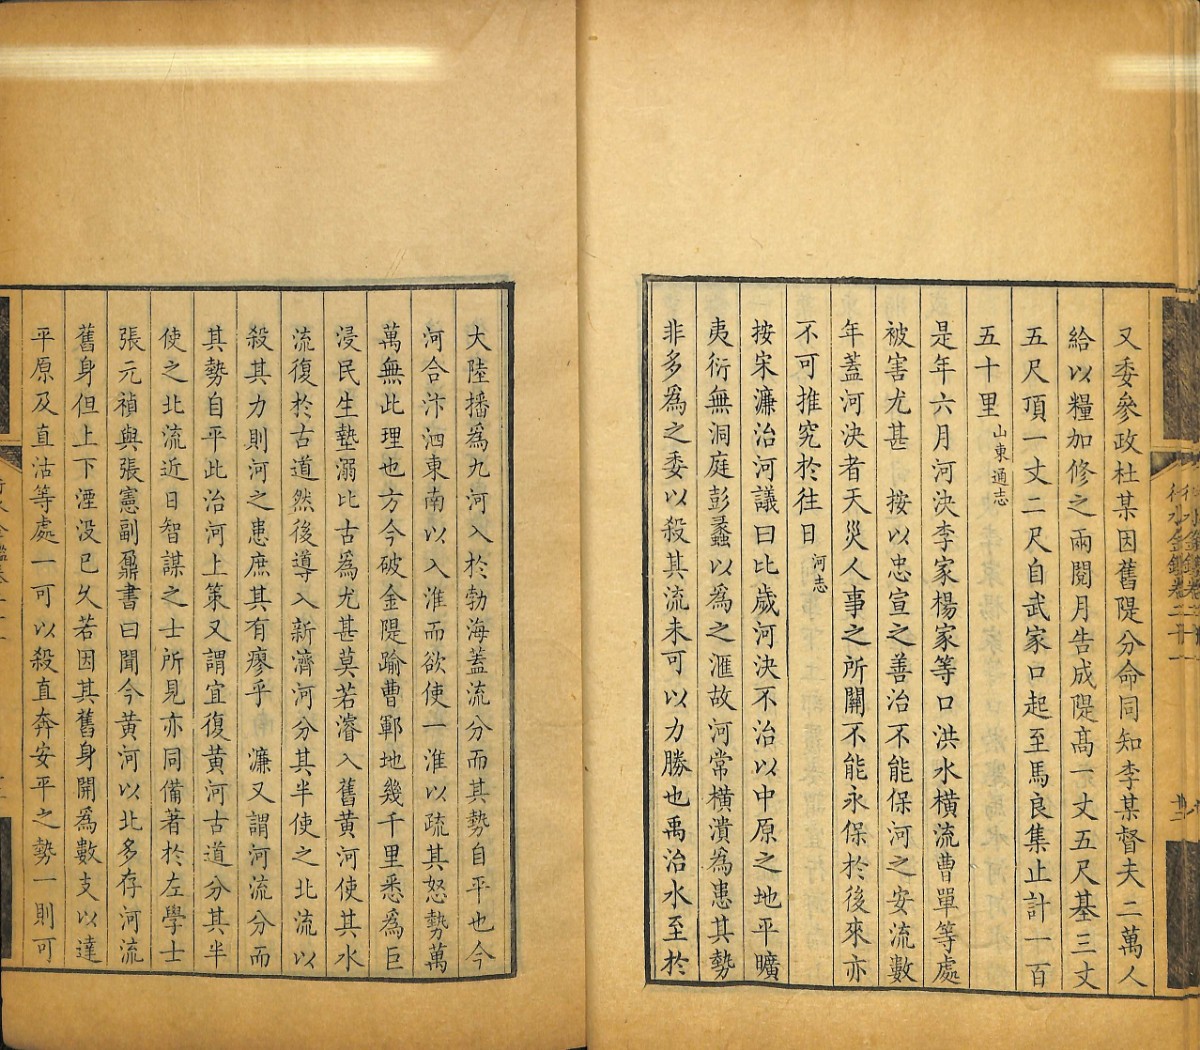 又委參政杜某因舊隄分命同知李某督夫二萬人
給以糧加修之兩閱月告成隄高一丈五尺基三丈
五尺頂一丈二尺自武家口起至馬良集止計一百
五十里山東通志
是年六月河決李家楊家等口洪水橫流曹單等處
被害尤甚　按以忠宣之善治不能保河之安流數
年蓋河決者天災人事之所關不能永保於後來亦
不可推究於往日河志
按宋濂治河議曰比歲河決不治以中原之地平曠
夷衍無洞庭彭蠡以為之滙故河常橫潰為患其勢
非多為之委以殺其流未可以力勝也禹治水至於
大陸播為九河入於勃海蓋流分而其勢自平也今
河合汴泗東南以入淮而欲使一淮以疏其怒勢萬
萬無此理也方今破金隄踰曹鄆地幾千里悉為巨
浸民生墊溺比古為尤甚莫若濬入舊黄河使其水
流復於古道然後導入新濟河分其半使之北流以
殺其力則河之患庶其有瘳乎　濂又謂河流分而
其勢自平此治河上策又謂宜復黄河古道分其半
使之北流近日智謀之士所見亦同備著於左學士
張元禎與張憲副鼐書曰聞今黄河以北多存河流
舊身但上下湮没已久若因其舊身開為數支以達
平原及直沽等處一可以殺直奔安平之勢一則可
行水金鑑卷二十一